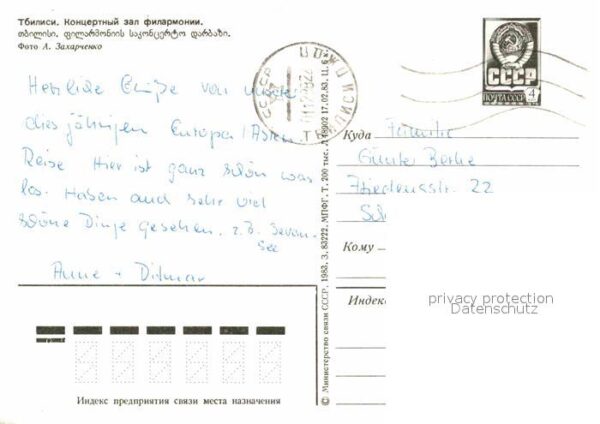 Тбилиси. Концертный зал филармонии.
თბილისი. ფილარმონიის საკონცერტო დარბაზი.
Фото А. Захарченко
Herzliche Grüße von unserer
diesjährigen Europa/Asien
Reise Hier ist ganz schön was
los. Haben auch sehr viel
schöne Dinge gesehen. z.B. Sevan-
See
Anne + Ditmar
Индекс предприятия связи места назначения
© Министерство связи СССР, 1983, З. 83222, МПФГ, Т. 200 тыс. 17.02.83, Ц. 6 к.
СССР
ПОЧТА СССР
4
Куда
Familie
Günter
Friedensstr. 22
Кому
Индекс
privacy protection
Datenschutz